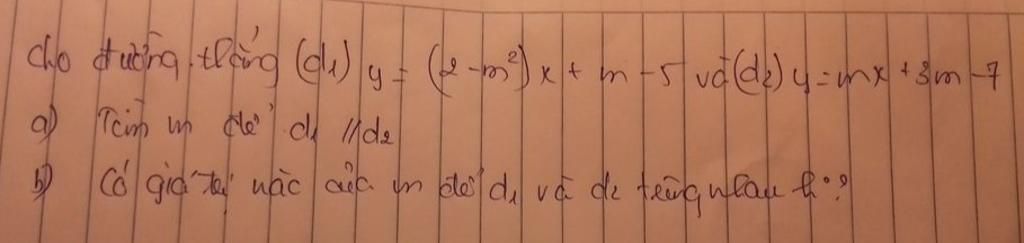 Cho đường thẳng (d₁) y = (2 - m²)x + m - 5 và (d₂) y = mx + 3m - 7
a) Tìm m để d₁ // d₂
b) Có giá trị nào của m để d₁ và d₂ trùng nhau k°?